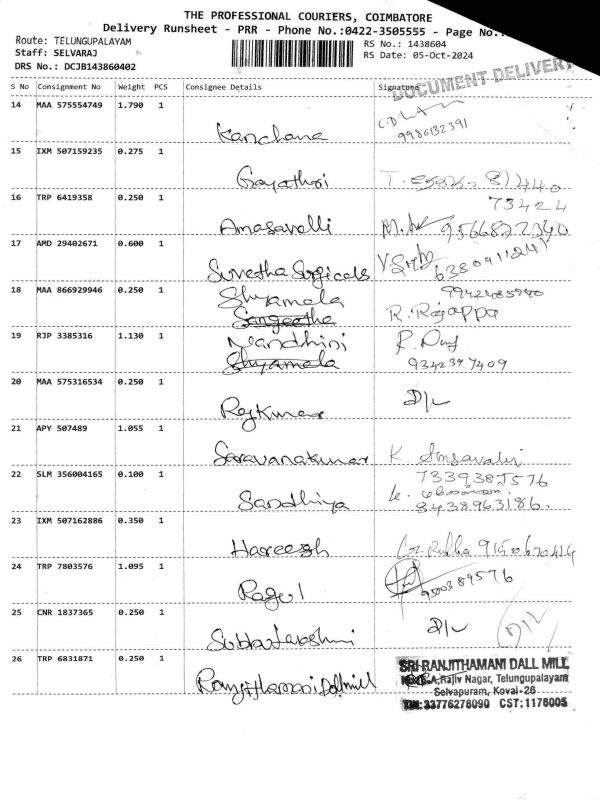 THE PROFESSIONAL COURIERS, COIMBATORE
Delivery Runsheet - PRR - Phone No.:0422-3505555 - Page No.:
Route: TELUNGUPALAYAM
RS No.: 1438604
Staff: SELVARAJ
RS Date: 05-Oct-2024
DRS No.: DCJB143860402
DOCUMENT DELIVERY
S No Consignment No Weight PCS Consignee Details Signature
14 MAA 575554749 1.790 1
Kanchana 9986132391
15 IXM 507159235 0.275 1
Gayathri 81440
16 TRP 6419358 0.250 1 73424
Amasavalli 9566822340
17 AMD 29402671 0.600 1
Suvetha Surgicals 6380911241
18 MAA 866929946 0.250 1 Shyamala
Sangeetha R. Rajappa
19 RJP 3385316 1.130 1 Nandhini
Shyamala 9342397409
20 MAA 575316534 0.250 1
Rajkumar D/L
21 APY 507489 1.055 1
Saravanakumar K
22 SLM 356004165 0.100 1 7339385576
Sandhiya 8438963186.
23 IXM 507162886 0.350 1
Hareesh 9150670414
24 TRP 7803576 1.095 1
Ragul 9500389576
25 CNR 1837365 0.250 1
D/L D/L
26 TRP 6831871 0.250 1
SRI RANJITHAMANI DALL MILL
A, Rajiv Nagar, Telungupalayam
Selvapuram, Kovai-26
TIN:33776278090 CST:1176005